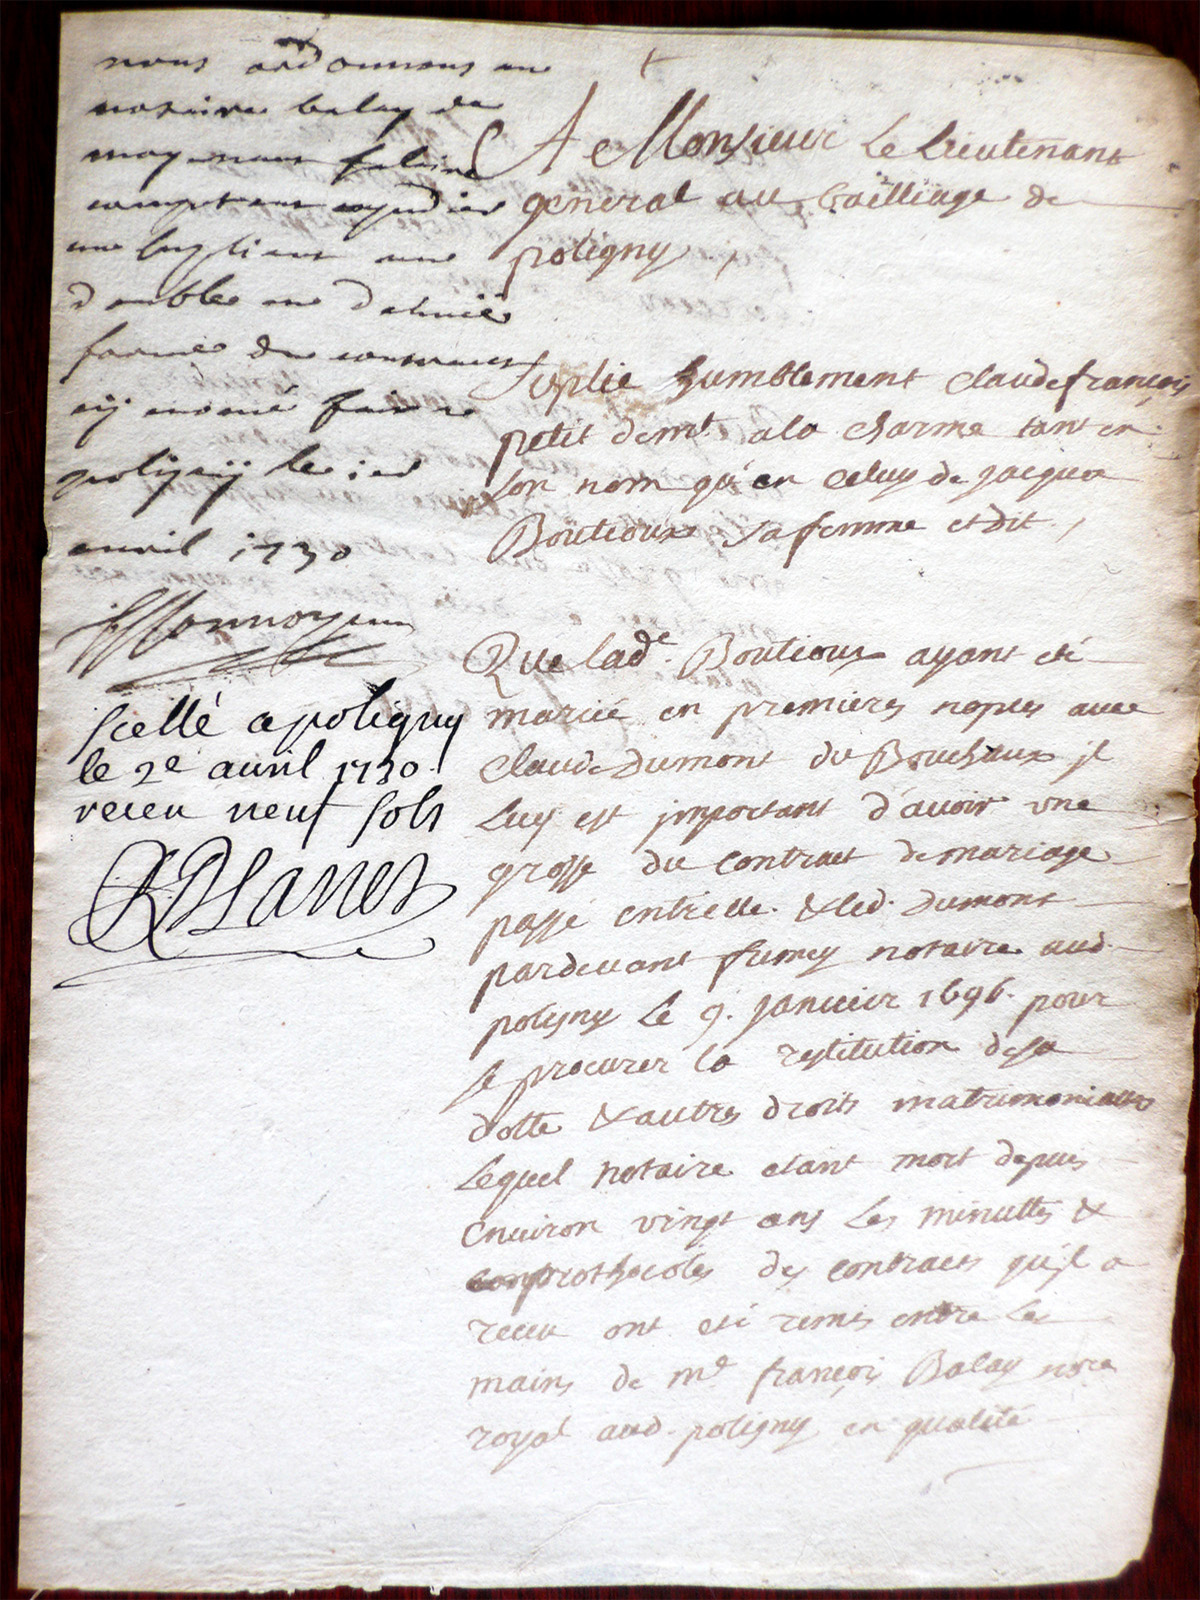 nous ordonnons au
notaire balay de
moyennant salaire
competent expedier
au supliant une
double en dehüe
forme du contract
ÿ enoncé fait a
poligny le ier
avril 1730
scellé a poligny
le 2e auril 1730
receu neuf sols
A Monsieur Le Lieutenant
general au bailliage de
poligny,
Suplie humblement Claude françois
petit demt. a la charme tant en
son nom qu'en celuy de jacqua
Boutioux sa femme et dit,
Que lade. Boutioux ayant eté
mariée en premieres nopces avec
Claude Dumont du Bouchaux jl
Luy est jmportant d'avoir vne
grosse du contract de mariage
passé entrelle & led. Dumont
pardevant fumey notaire aud.
poligny Le 9. janvier 1696. pour
se procurer la restitution de sa
dotte & autres droits matrimoniaux
Lequel notaire etant mort depuis
Environ vingt ans Les minuttes &
prothocoles des contracts qu'jl a
receu ont eté remis entre Les
mains de me françois Balay nore
royal aud. poligny en qualité